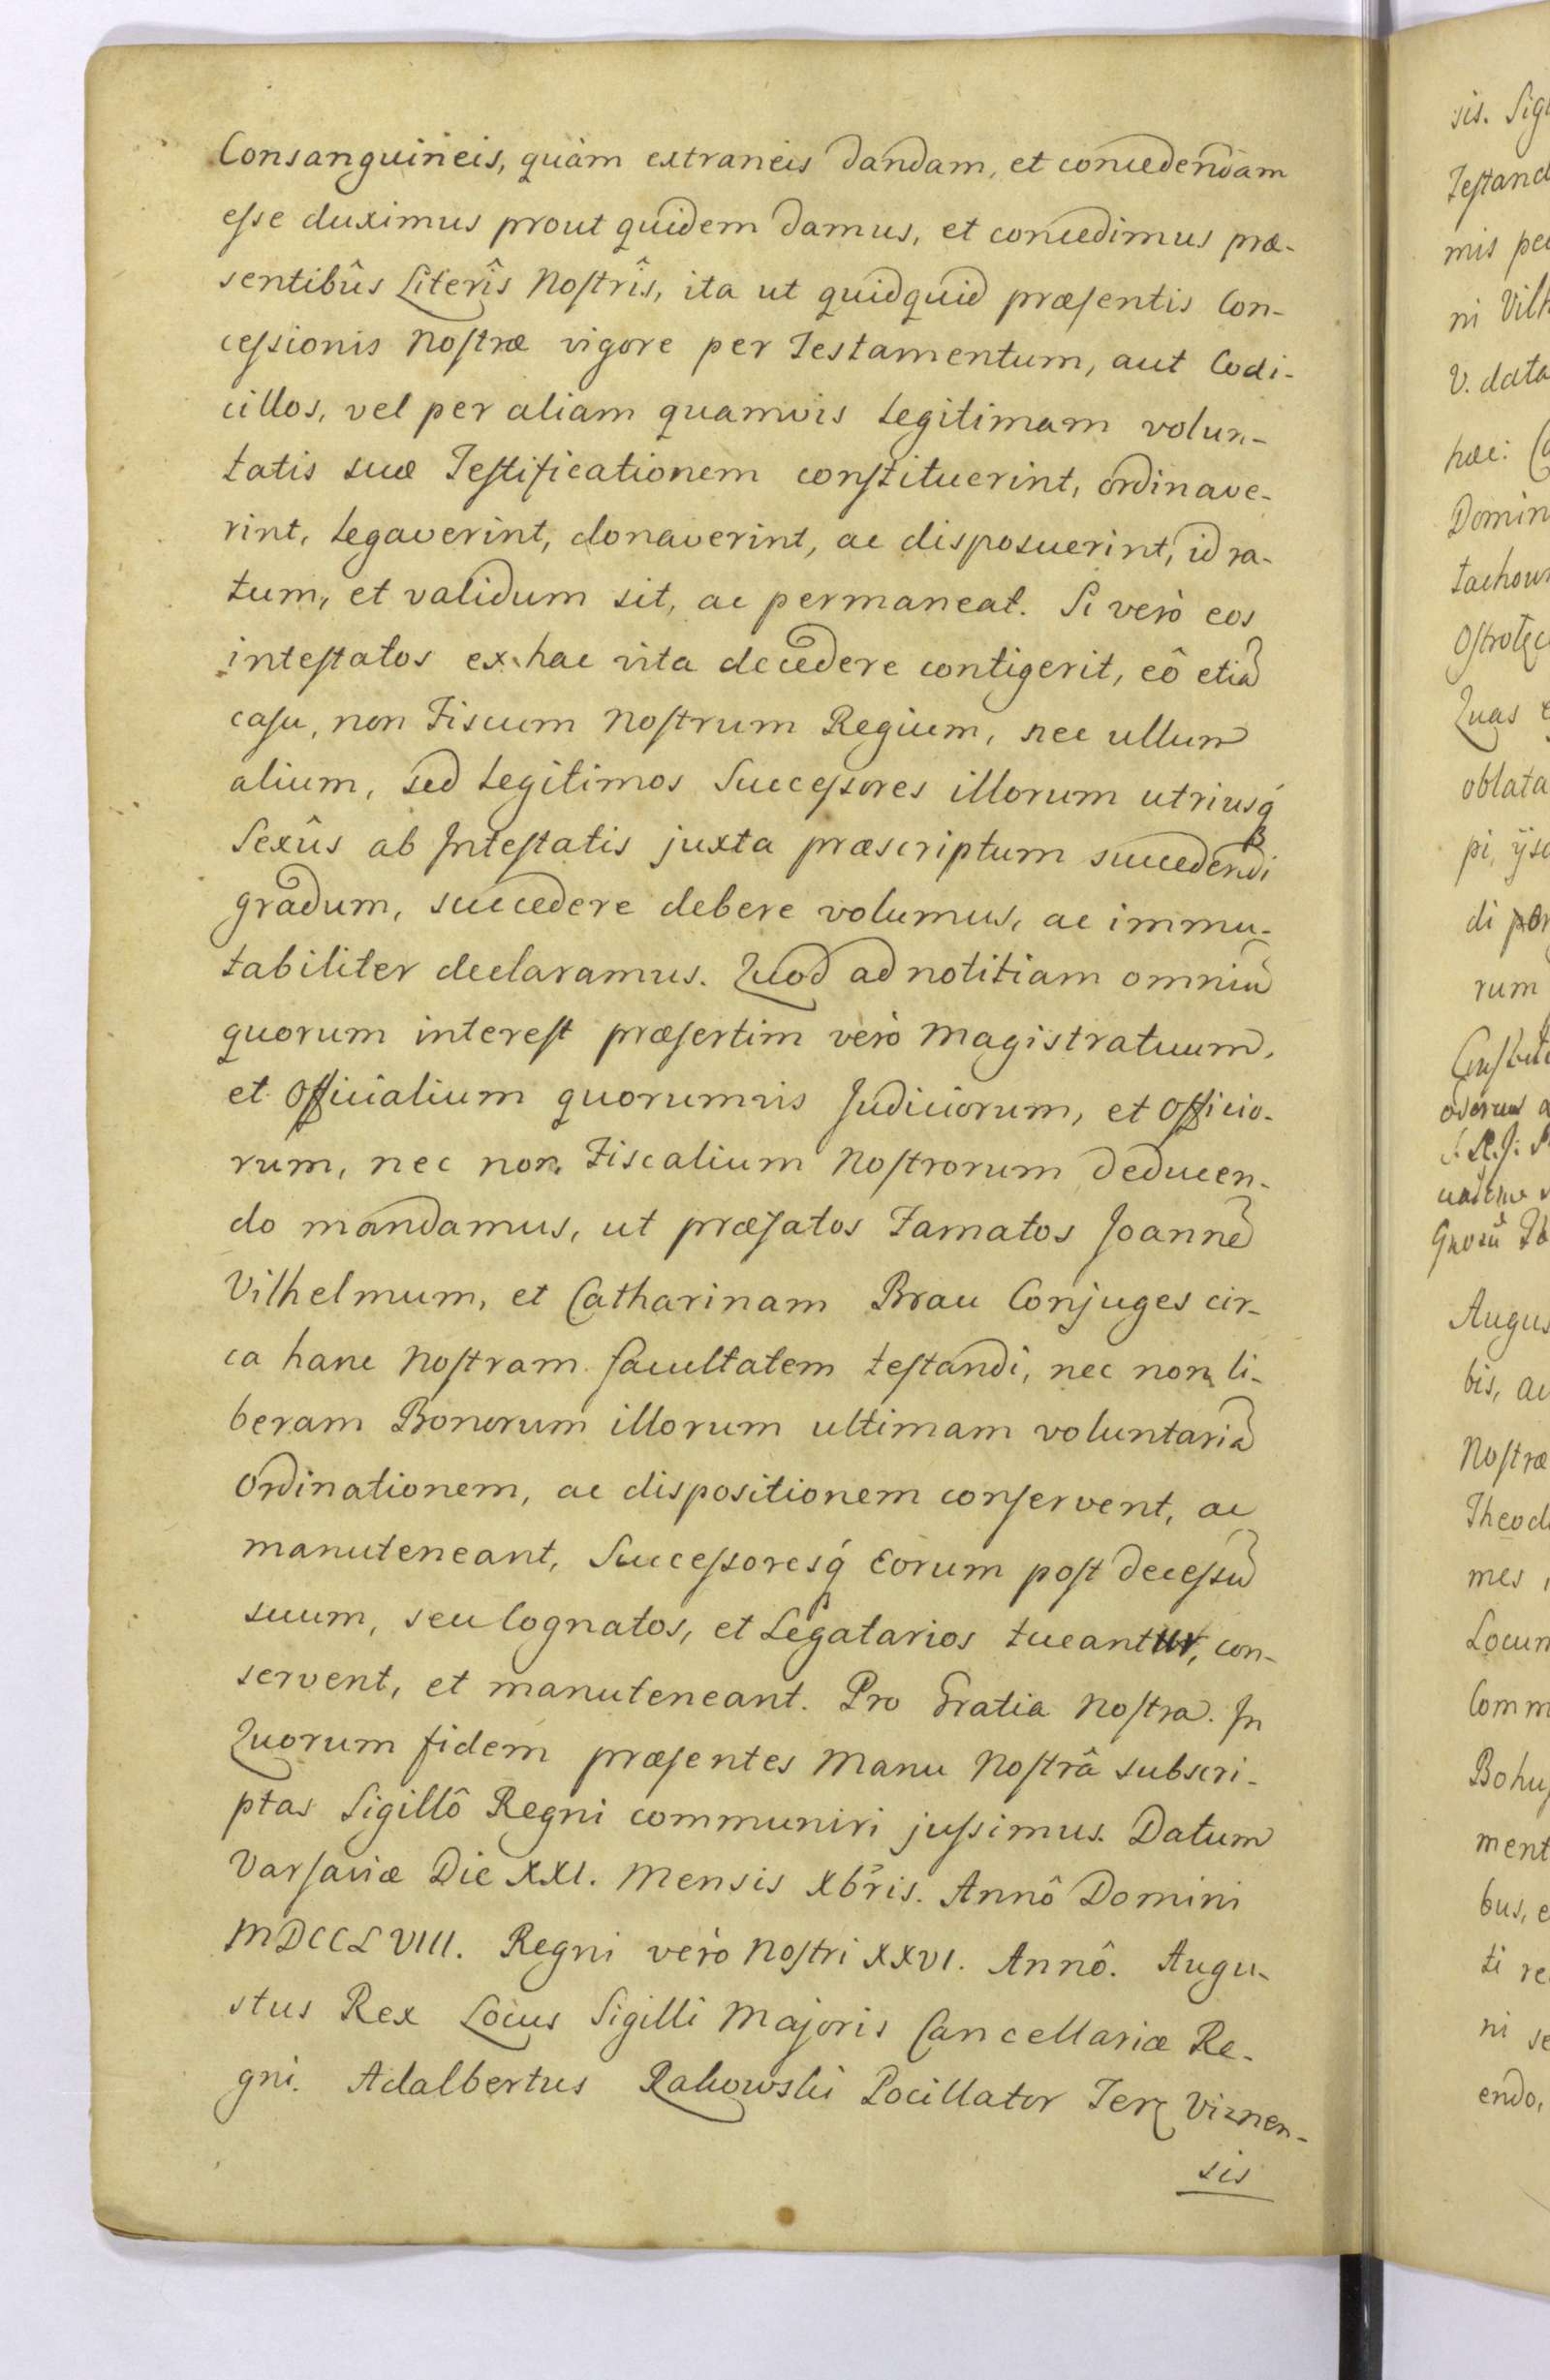 Consanguineis, quàm extraneis dandam, et concedendam
esse duximus prout quidem damus, et concedimus præ-
sentibûs Literîs Nostrîs, ita ut quidquid præsentis Con-
cessionis Nostræ vigore per Testamentum, aut Codi-
cillos, vel per aliam quamvis Legitimam volun-
tatis suæ Testificationem constituerint, ordinave-
rint, Legaverint, donaverint, ac disposuerint, id ra-
tum, et validum sit, ac permaneat. Si verò eos
intestatos ex hac vita decedere contigerit, eô etiã
casu, non Fiscum Nostrum Regium, nec ullum
alium, sed Legitimos Successores illorum utriusq́
Sexûs ab Intestatis juxta præscriptum succedendi
gradum, succedere debere volumus, ac immu-
tabiliter declaramus. Quod ad notitiam omniũ
quorum interest præsertim verò Magistratuum,
et Officialium quorumvis Judiciorum, et Officio-
rum, nec non Fiscalium Nostrorum deducen-
do mandamus, ut præfatos Famatos Joannẽ
Vilhelmum, et Catharinam Brau Conjuges cir-
ca hanc Nostram facultatem testandi, nec non li-
beram Bonorum illorum ultimam voluntariã
Ordinationem, ac dispositionem conservent, ac
manuteneant, Successoresq́ Eorum post decessũ
suum, seu Cognatos, et Legatarios tueantur, con-
servent, et manuteneant. Pro Gratia Nostra. In
Quorum fidem præsentes Manu Nostrâ subscri-
ptas Sigillô Regni communiri jussimus. Datum
Varsaviæ Die XXI. Mensis Xbris. Annô Domini
MDCCLVIII. Regni verò Nostri XXVI. Annô. Augu-
stus Rex Locus Sigilli Majoris Cancellariæ Re-
gni. Adalbertus Rakowski Pocillator Terę Viznen-
sis
sis. Sig
Testand
mis pe
ni Vilh
V. data
hæc:
Domin
tachow
Ostrołęc
Quas
oblata
pi, ijsd
di por
rum
Augus
bis, ac
Nostræ
Theod
mes
Locum
Comm
Bohu
ment
bus, e
ti re
ni se
endo,